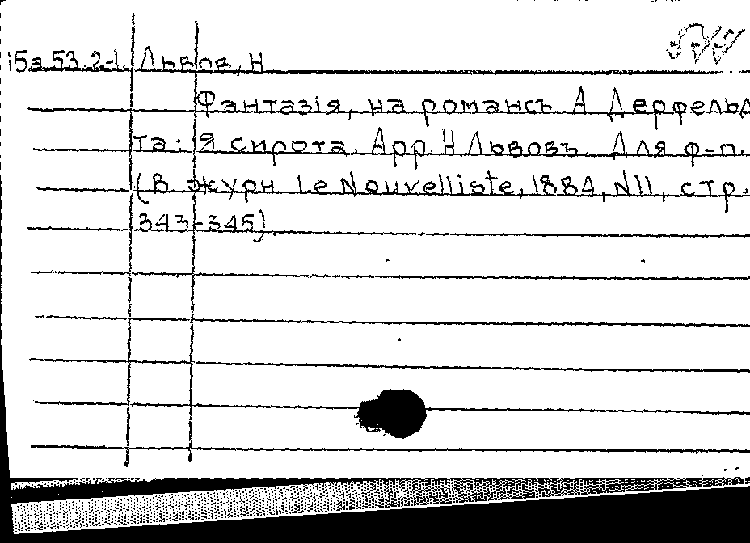 15а.53.2-1. Львов, Н
Фантазія, на романсъ А Дерфельд
та: Я сирота. Арр. Н Львовъ. Для ф-п.
(В журн Le Nouvelliste, 1884, N11, стр.
343-345)